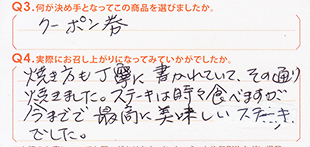 Q3.何が決め手となってこの商品を選びましたか。
クーポン券
Q4.実際にお召し上がりになってみていかがでしたか。
焼き方も丁寧に書かれていて、その通り
焼きました。ステーキは時々食べますが
今までで最高に美味しいステーキ
でした。